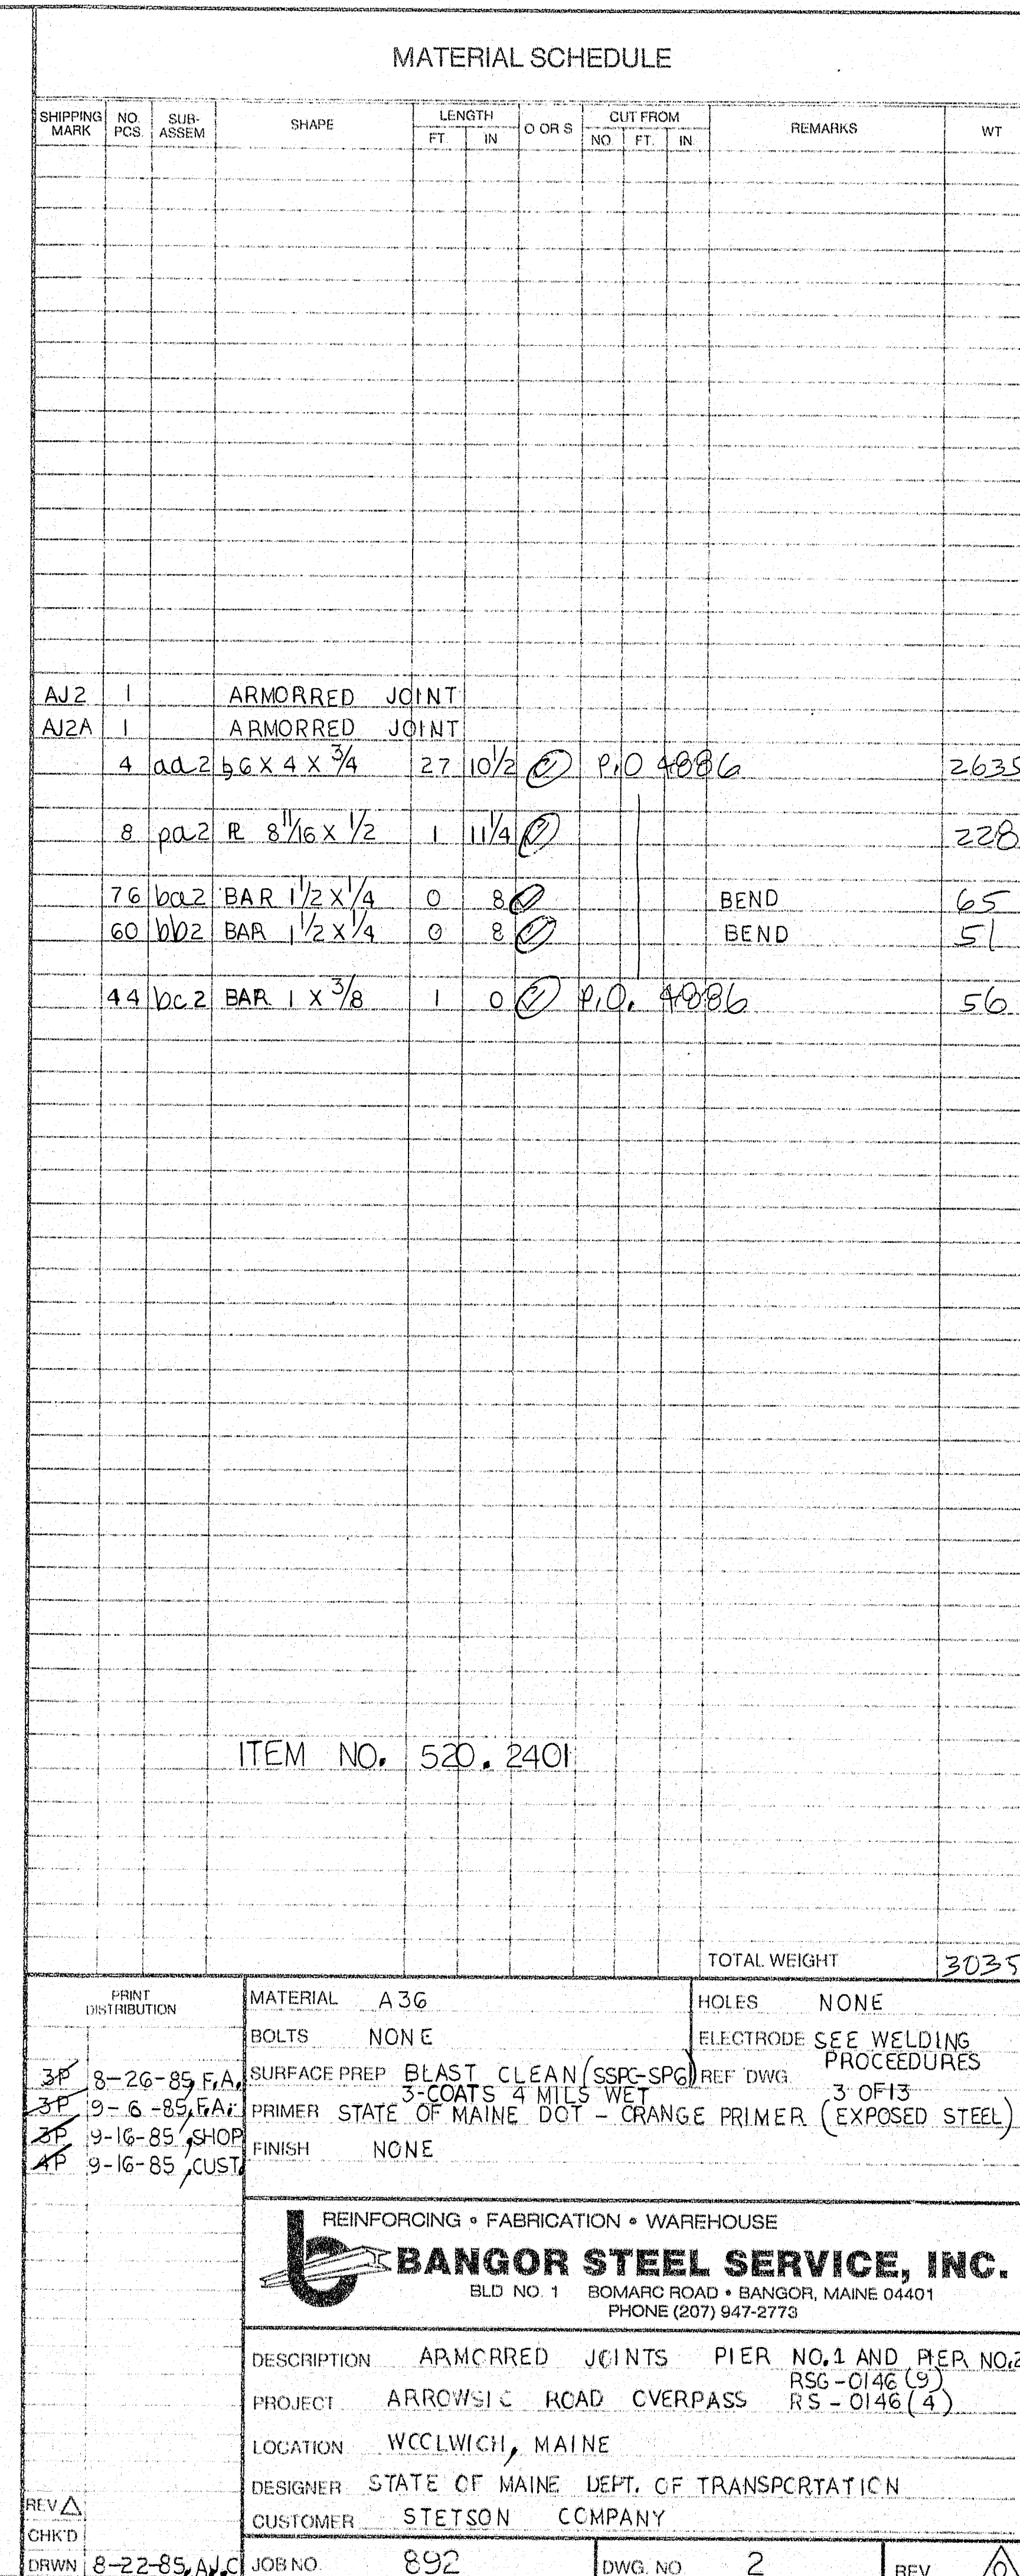 MATERIAL SCHEDULE
SHIPPING MARK NO. PCS. SUB-ASSEM SHAPE LENGTH FT. IN O OR S CUT FROM NO. FT. IN. REMARKS WT
AJ2 1 ARMORRED JOINT
AJ2A 1 ARMORRED JOINT
4 aa2 6 X 4 X 3/4 27 10 1/2 P.O 4886 2635
8 pa2 PL 8 11/16 X 1/2 1 11 1/4 228
76 ba2 BAR 1 1/2 X 1/4 0 8 BEND 65
60 bb2 BAR 1 1/2 X 1/4 0 8 BEND 51
44 bc2 BAR 1 X 3/8 1 0 P.O. 4886 56
ITEM NO. 520.2401
TOTAL WEIGHT 3035
PRINT DISTRIBUTION
3P 8-26-85, F.A.
3P 9-6-85, F.A.
3P 9-16-85, SHOP
4P 9-16-85, CUST.
MATERIAL A36 HOLES NONE
BOLTS NONE ELECTRODE SEE WELDING
PROCEEDURES
SURFACE PREP BLAST CLEAN (SSPC-SP6) REF DWG. 3 OF 13
3-COATS 4 MILS WET
PRIMER STATE OF MAINE DOT - ORANGE PRIMER (EXPOSED STEEL)
FINISH NONE
REINFORCING • FABRICATION • WAREHOUSE
BANGOR STEEL SERVICE, INC.
BLD NO. 1 BOMARC ROAD • BANGOR, MAINE 04401
PHONE (207) 947-2773
DESCRIPTION ARMORRED JOINTS PIER NO.1 AND PIER NO.2
RSG-0146(9)
PROJECT ARROWSIC ROAD OVERPASS RS-0146(4)
LOCATION WOOLWICH, MAINE
DESIGNER STATE OF MAINE DEPT. OF TRANSPORTATION
CUSTOMER STETSON COMPANY
REV △
CHK'D
DRWN 8-22-85, A.J.C
JOB NO. 892 DWG. NO. 2 REV 0